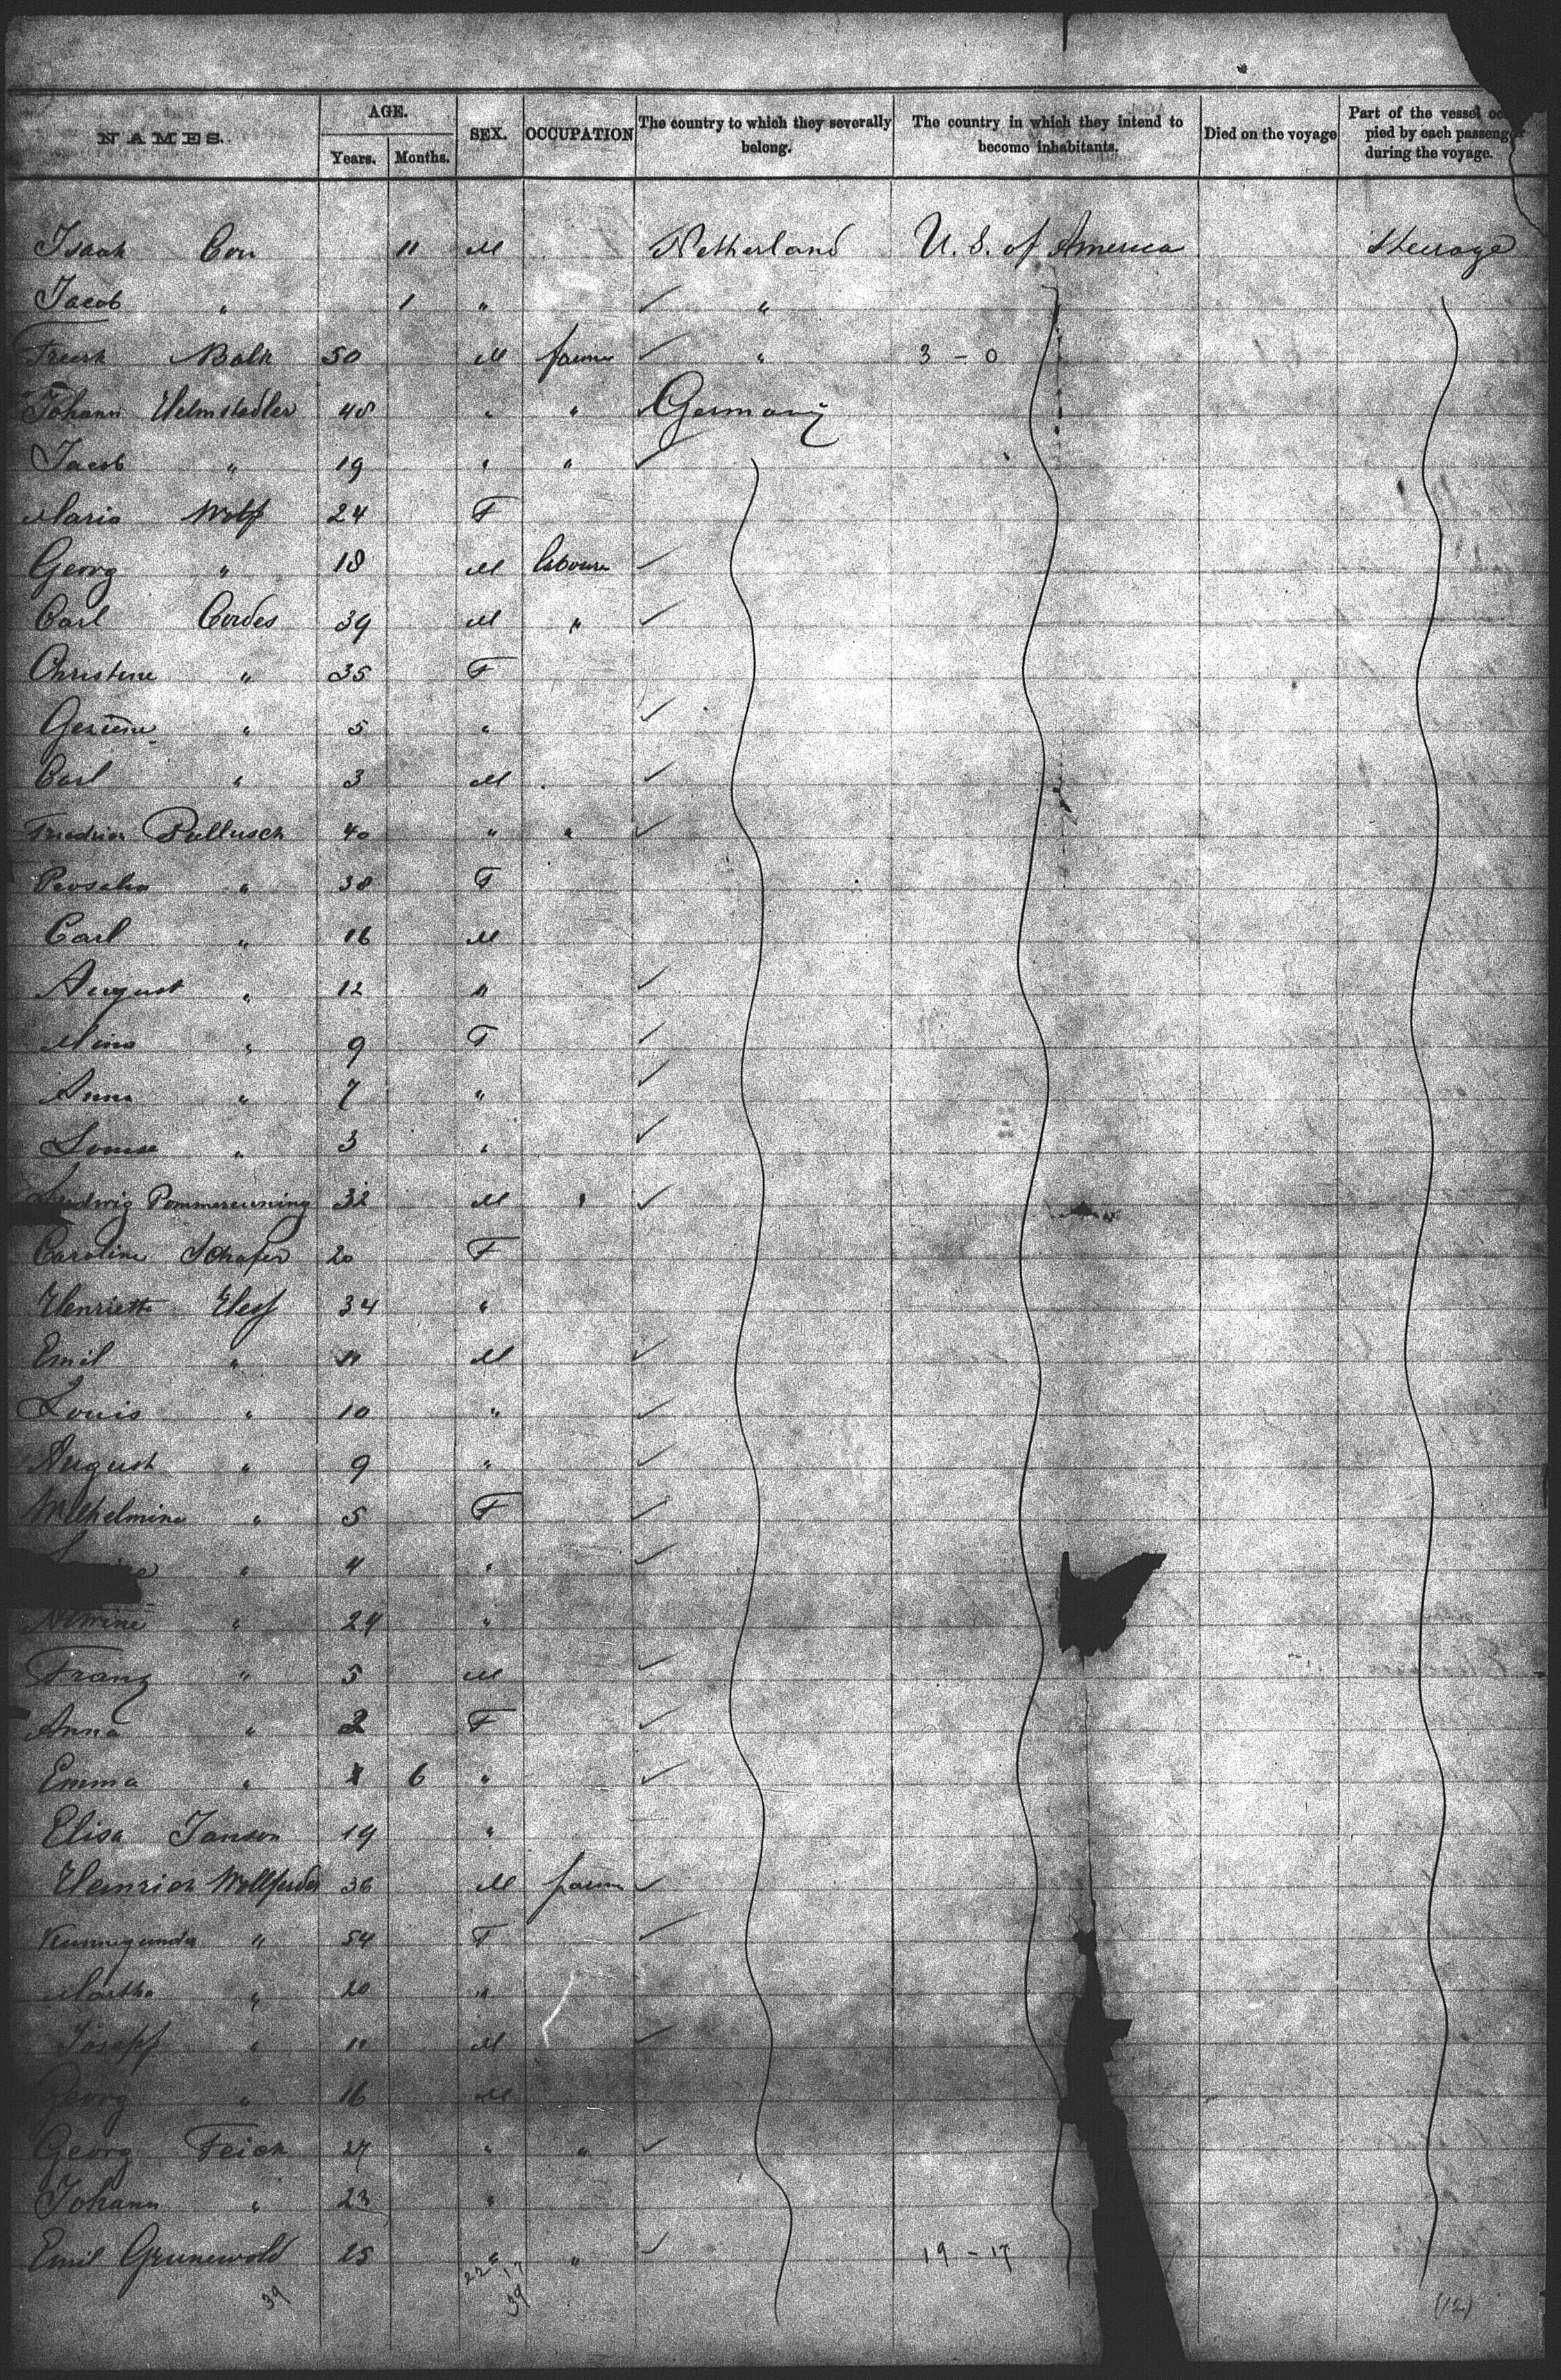 NAMES. AGE. Years. Months. SEX. OCCUPATION The country to which they severally belong. The country in which they intend to become inhabitants. Died on the voyage Part of the vessel occupied by each passenger during the voyage.
Isaak Cou 11 M Netherland U. S. of America Steerage
Jacob " 1 " "
Balk 50 M farmer " 3 - 0
Johann Helmstadler 48 " " Germany
Jacob " 19 " "
Maria Wolf 24 F
Georg " 18 M labourer
Carl Cordes 39 M "
Christine " 35 F
" 5 "
Carl " 3 M
Friedrich Pallusch 40 " "
" 38 F
Carl " 16 M
August " 12 "
Mina " 9 F
Anna " 7 "
Louise " 3 "
Ludwig Pommerenning 32 M "
Caroline Schafer 20 F
Henriette Hess 34 "
Emil " 11 M
Louis " 10 "
August " 9 "
Wilhelmine " 5 F
" 4 "
" 24 "
Franz " 5 M
Anna " 2 F
Emma " 6 "
Elisa Janson 19 "
Heinrich 36 M farmer
Kunnegunda " 54 F
Martha " 20 "
Josepf " 11 M
Georg " 16 M
Georg Feick 27 " "
Johann " 23 "
Emil Grunewold 25 " " 19 - 17
39 22 17 39 (12)